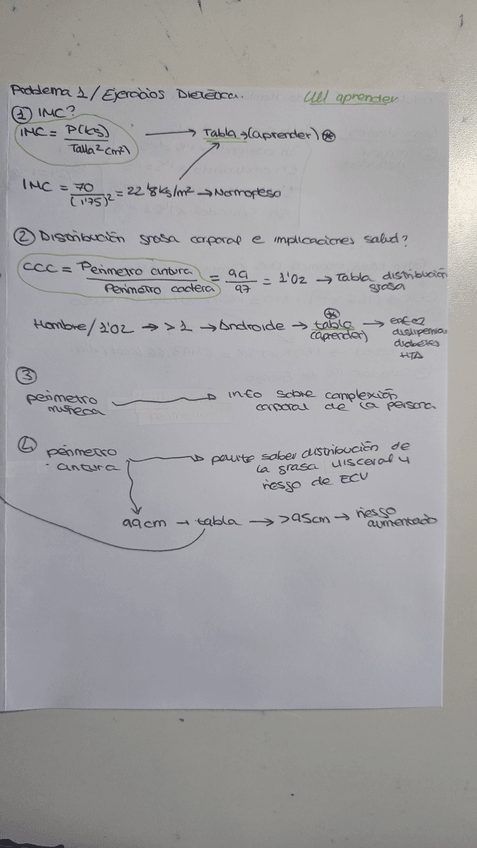 Problema 1 / Ejercicios Dietética.
aprender
① IMC?
IMC = P(kg) / Talla² (m²) → Tabla → (aprender) ⊛
IMC = 70 / (1'75)² = 22'8 kg/m² → Normopeso
② Distribución grasa corporal e implicaciones salud?
CCC = Perímetro cintura / Perímetro cadera = 99 / 97 = 1'02 → Tabla distribución
grasa
⊛
Hombre / 1'02 → > 1 → Androide → tabla →
(aprender)
dislipemia
diabetes
HTA
③
perímetro → info sobre complexión
muñeca corporal de la persona
④ perímetro → saber distribución de
cintura la grasa visceral y
riesgo de ECV
99cm → tabla → >95cm → riesgo
aumentado